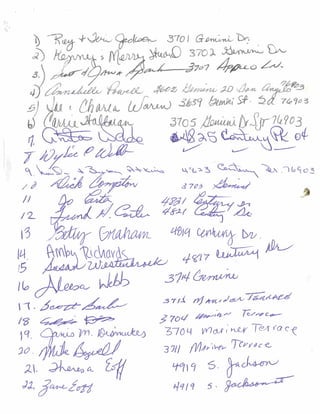 1) Ray & Teri Jackson 3701 Gemini Dr.
2) Kenney & Merry 3702 Gemini Dr
3.) 3707 Apollo Ln.
4) Annabelle Powell 3602 Gemini 20 San Angelo 76903
5) Charla Waren 3639 Gemini St. SA 76903
6) Carrie Halfman 3705 Gemini Dr
7. Anita Webb 4825 Century Pk
8 Wylie P Webb
9 4823 Century Dr. 76903
10 Dick Compton 3703 Gemini
11 Jo Carter 4821 Century Dr
12 H. Carter 4821 Century Dr
13 Betty Graham 4819 Century Dr.
14 Amby Richards
15 Susan Westenbrook 4817 Century Dr
16 Aleesa Webb 3714 Gemini
17. Scott 3712 Mariner Terrace
18 3704 Mariner Terrace
19. James M. Dismukes 3704 Mariner Terrace
20. Mike 3711 Mariner Terrace
21. Theresa Eoff 4919 S. Jackson
22. Zane Eoff 4919 S. Jackson st